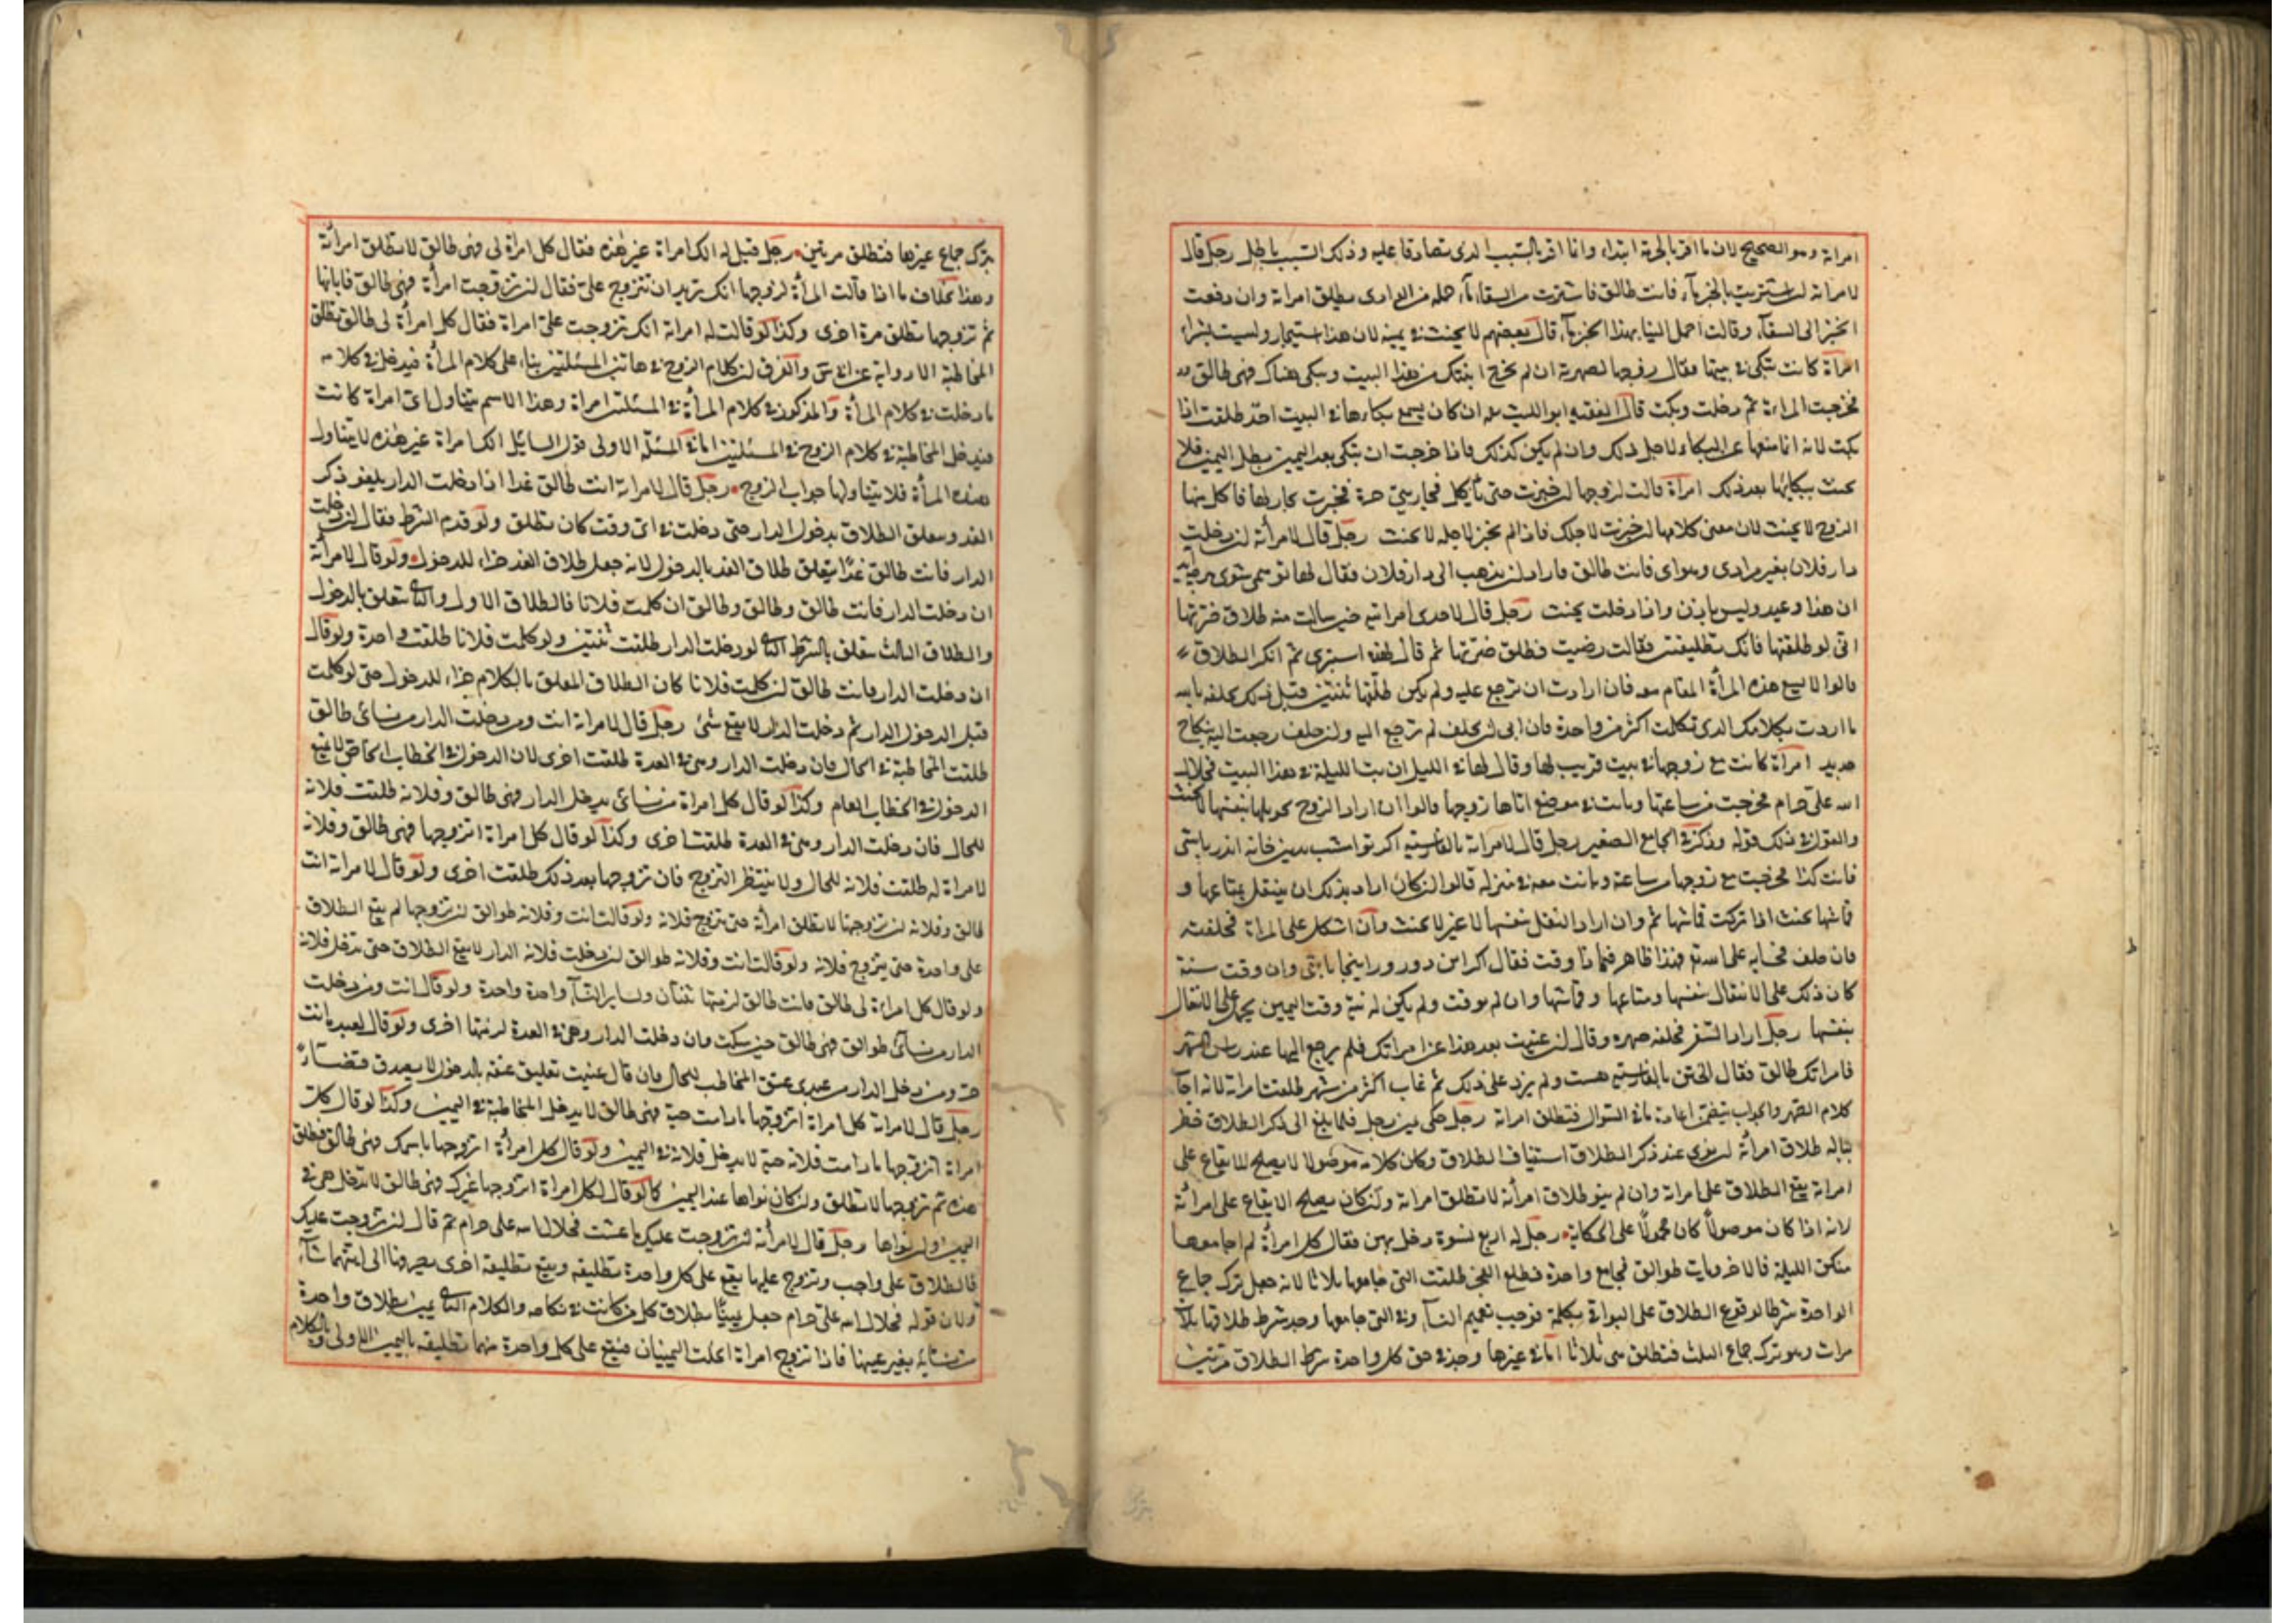 امراته وهو الصحيح لان ما اقر بالحرمة ابتداء وانما اقر بالسبب الذى تصادقا عليه وذلك السبب باطل رجل قال
لامراته ان اشتريت بالخبز ماء فانت طالق فاشترت من السقاء ماء حمله من الوادى يطلق امراته وان دفعت
الخبز الى السقاء وقالت احمل الينا بهذا الخبز ماء قال بعضهم لا يحنث فى يمينه لان هذا استيجار وليست بشراء
امراة كانت تبكى فى بيتها فقال زوجها لصهرته ان لم تخرج ابنتك من هذا البيت وتبكى هناك فهى طالق
فخرجت المراة ثم دخلت وبكت قال الفقيه ابو الليث ان كان يسمع بكاءها فى البيت احد طلقت اذا
بكت لانه انما منعها عن البكاء لاجل ذلك وان لم يكن كذلك فاذا خرجت ان تبكى بعد اليمين بطل اليمين فلا
يحنث ببكائها بعد ذلك امراة قالت لزوجها ان خبزت حتى تاكل فجاريتى حرة فخبزت فاكل منها
الزوج لا يحنث لان معنى كلامها ان خبزت لاجلك فاذا لم تخبز لاجله لا يحنث رجل قال لامراته ان دخلت
دار فلان بغير مرادى وهواى فانت طالق فاراد ان يذهب الى دار فلان فقال لها تو همى شوى
ان هذا وعيد وليس باذن واذا دخلت يحنث رجل قال لاحدى امراتيه حين سالت منه طلاق ضرتها
انى لو طلقتها فانك تطليقتين فقالت رضيت فطلق ضرتها ثم قال لهذه استبرى ثم انكر الطلاق
قالوا لا يسع هذه المرأة المقام معه فان ارادت ان ترجع عليه ولم يكن طلقها ثنتين قبل ذلك تحلفه بالله
ما اردت بكلامك الذى تكلمت اكثر من واحدة فان ابى ان يحلف لم ترجع اليه وان حلف رجعت اليه بنكاح
جديد امراة كانت مع زوجها فى بيت قريب لها وقال لها فى الليل ان بتنا الليلة فى هذا البيت فحلال
الله على حرام فخرجت من ساعتها وباتت فى موضع اتاها زوجها قالوا ان اراد الزوج تحويلها بنفسها لا يحنث
والقول فى ذلك قوله وذكر فى الجامع الصغير رجل قال لامراته بالفارسية اكر تو امشب بدين خانه اندر باشى
فانت كذا فخرجت مع زوجها من ساعته وباتت معه فى منزله قالوا ان كان اراد بذلك ان ينتقل بمتاعها و
قماشها يحنث اذا تركت قماشها ثم وان اراد النقل بنفسها لا غير لا يحنث وان اشكل على المراة فحلفته
فان حلف فحسابه على الله تعالى هذا ظاهر فيما اذا وقت فقال اكر اين دو روز اينجا باشى وان وقت سنة
كان ذلك على الانتقال بنفسها ومتاعها وقماشها وان لم يوقت ولم يكن له نية وقت اليمين يحمل على الانتقال
بنفسها رجل اراد السفر فحلفه صهره وقال ان غبت بعد هذا عن امراتك فلم ترجع اليها عند راس الشهر
فامراتك طالق فقال الختن بالفارسية هست ولم يزد على ذلك ثم غاب اكثر من شهر طلقت امراته لانه اجاب
كلام الصهر والجواب يتضمن اعادة ما فى السؤال فتطلق امراته رجل حكى يمين رجل فلما بلغ الى ذكر الطلاق خطر
بباله طلاق امراته ان نوى عند ذكر الطلاق استيناف الطلاق وكان كلامه موصولا لا يصلح للايقاع على
امراته يقع الطلاق على امراته وان لم ينو طلاق امرأته لا تطلق امراته وان كان يصلح الايقاع على امرأته
لانه اذا كان موصولا كان محمولا على الحكاية رجل له اربع نسوة دخل بهن فقال كل امرأة لم اجامعها
منكن الليلة فالاخريات طوالق فجامع واحدة فطلع الفجر طلقت التى جامعها ثلاثا لانه جعل ترك جماع
الواحدة شرطا لوقوع الطلاق على البواقى بكلمة توجب تعميم النساء وفى التى جامعها وجد شرط طلاقها ثلاث
مرات وهو ترك جماع الثلث فتطلق هى ثلاثا اما فى غيرها وجد فى حق كل واحدة شرط الطلاق مرتين
بترك جماع غيرها فتطلق مرتين رجل قيل له الك امراة غير هذه فقال كل امراة لى فهى طالق لا تطلق امرأته
وهذا بخلاف ما اذا قالت المرأة لزوجها انك تريد ان تتزوج على فقال ان تزوجت امرأة فهى طالق فابانها
ثم تزوجها تطلق مرة اخرى وكذا لو قالت له امراته انك تزوجت على امراة فقال كل امرأة لى طالق تطلق
المخاطبة الا رواية عن والفرق ان كلام الزوج فى هاتين المسئلتين بناء على كلام المرأة فيدخل فى كلامه
ما دخلت فى كلام المرأة والمذكور فى كلام المرأة فى المسئلتين امراة وهذا الاسم يتناول اى امراة كانت
فيدخل المخاطبة فى كلام الزوج فى المسئلتين اما فى المسئلة الاولى قول السائل الك امراة غير هذه لا يتناول
هذه المرأة فلا يتناولها جواب الزوج رجل قال لامراته انت طالق غدا اذا دخلت الدار يلغو ذكر
الغد ويتعلق الطلاق بدخول الدار حتى دخلت فى اى وقت كان تطلق ولو قدم الشرط فقال ان دخلت
الدار فانت طالق غدًا يتعلق طلاق الغد بالدخول لانه جعل طلاق الغد جزاء للدخول ولو قال لامرأته
ان دخلت الدار فانت طالق وطالق وطالق ان كلمت فلانا فالطلاق الاول والثانى يتعلق بالدخول
والطلاق الثالث يتعلق بالشرط الثانى لو دخلت الدار طلقت ثنتين ولو كلمت فلانا طلقت واحدة ولو قال
ان دخلت الدار فانت طالق ان كلمت فلانا كان الطلاق المعلق بالكلام جزاء للدخول حتى لو كلمت
قبل الدخول الدار ثم دخلت الدار لا يقع شئ رجل قال لامراته انت ومن دخلت الدار من نسائى طالق
طلقت المخاطبة فى الحال فان دخلت الدار وهى فى العدة طلقت اخرى لان الدخول فى الخطاب الخاص لا يمنع
الدخول فى الخطاب العام وكذا لو قال كل امراة من نسائى يدخل الدار فهى طالق وفلانة طلقت فلانة
للحال فان دخلت الدار وهى فى العدة طلقت اخرى وكذا لو قال كل امراة اتزوجها فهى طالق وفلانة
لامراة له طلقت فلانة للحال ولا ينتظر التزوج فان تزوجها بعد ذلك طلقت اخرى ولو قال لامراته انت
طالق وفلانة ان تزوجتها لا تطلق امرأته حتى يتزوج فلانة ولو قال انت وفلانة طوالق ان تزوجها لم يقع الطلاق
على واحدة حتى يتزوج فلانة ولو قال انت وفلانة طوالق ان دخلت فلانة الدار لا يقع الطلاق حتى تدخل فلانة
ولو قال كل امراة لى طالق فانت طالق لزمتها ثنتان ولساير النساء واحدة واحدة ولو قال انت ومن دخلت
الدار من نسائى طوالق فهى طالق حين سكت فان دخلت الدار وهى فى العدة لزمتها اخرى ولو قال لعبده انت
حر ومن دخل الدار من عبيدى عتق المخاطب للحال فان قال عنيت تعليق عتقه بالدخول لا يصدق قضاء
رجل قال لامراته كل امراة اتزوجها ما دامت حية فهى طالق لا يدخل المخاطبة فى اليمين وكذا لو قال كل
امراة اتزوجها ما دامت فلانة حية لا يدخل فلانة فى اليمين ولو قال كل امرأة اتزوجها باسمك فهى طالق فطلق
هذه ثم تزوجها لا تطلق وان كان نواها عند اليمين كما لو قال لكل امراة اتزوجها غيرك فهى طالق لا تدخل هى فى
اليمين وان نواها رجل قال لامرأته ان تزوجت عليك ما عشت فحلال الله على حرام ثم قال ان تزوجت عليك
فالطلاق على واجب وتزوج عليها يقع على كل واحدة تطليقة ويقع تطليقة اخرى يصرفها الى ايتهما شاء
ولان قوله فحلال الله على حرام جعل يمينًا بطلاق كل من كانت فى نكاحه والكلام الثانى يمين بطلاق واحدة
من نسائه بغير عينها فاذا تزوج امراة انحلت اليمينان فيقع على كل واحدة منهما تطليقة باليمين الاولى وبالكلام